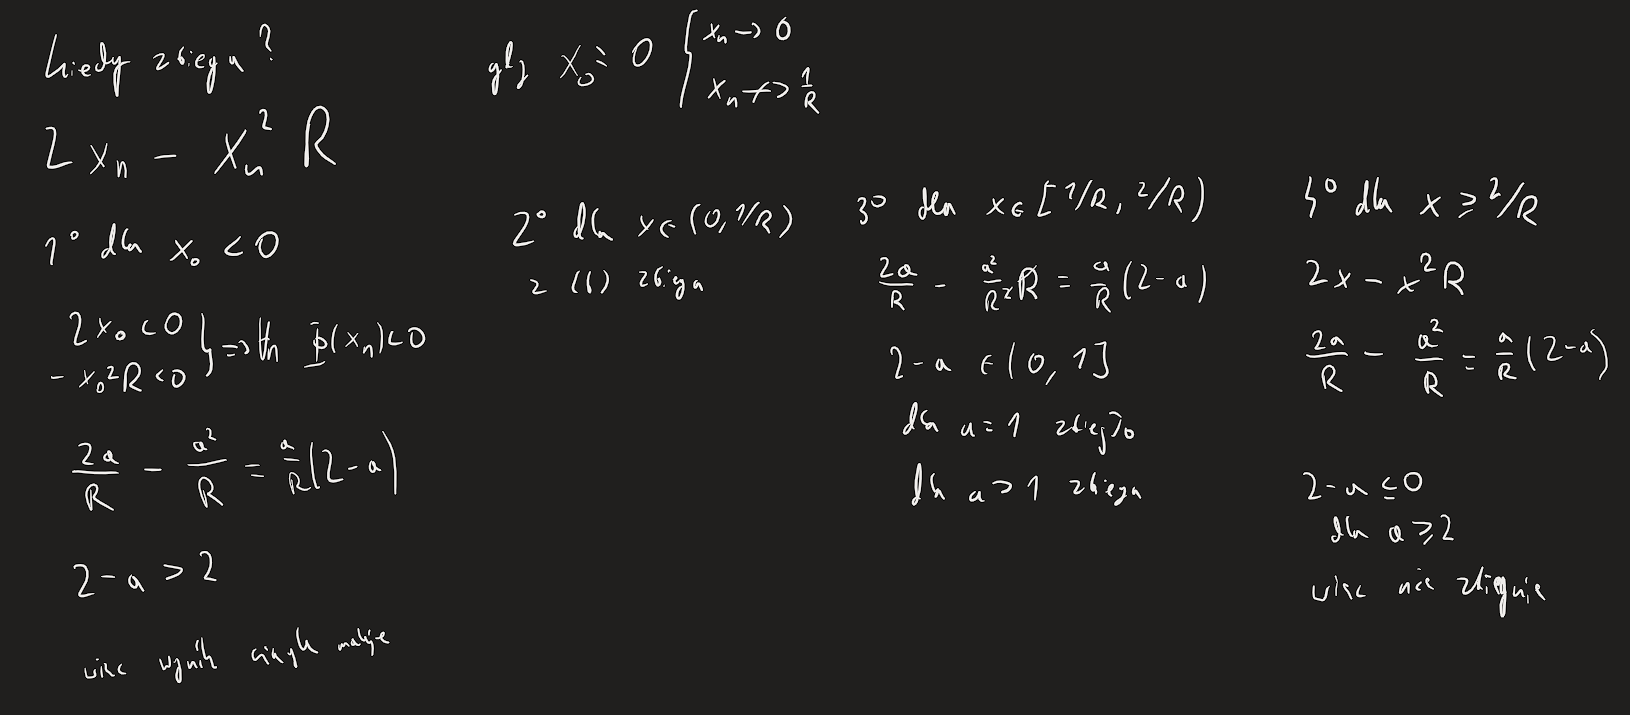 kiedy zbiega?
2xₙ - xₙ² R
1° dla x₀ < 0
2x₀ < 0
- x₀²R < 0 } => ∀n Φ(xₙ) < 0
2a/R - a²/R = a/R (2-a)
2-a > 2
więc wynik ciągle maleje
gdy x₀ = 0 { xₙ → 0
xₙ ↛ 1/R
2° dla x ∈ (0, 1/R)
z (b) zbiega
3° dla x ∈ [1/R, 2/R)
2a/R - a²/R² R = a/R (2-a)
2-a ∈ (0, 1]
dla a = 1 zbiegło
dla a > 1 zbiega
4° dla x ≥ 2/R
2x - x²R
2a/R - a²/R = a/R (2-a)
2-a ≤ 0
dla a ≥ 2
więc nie zbiegnie